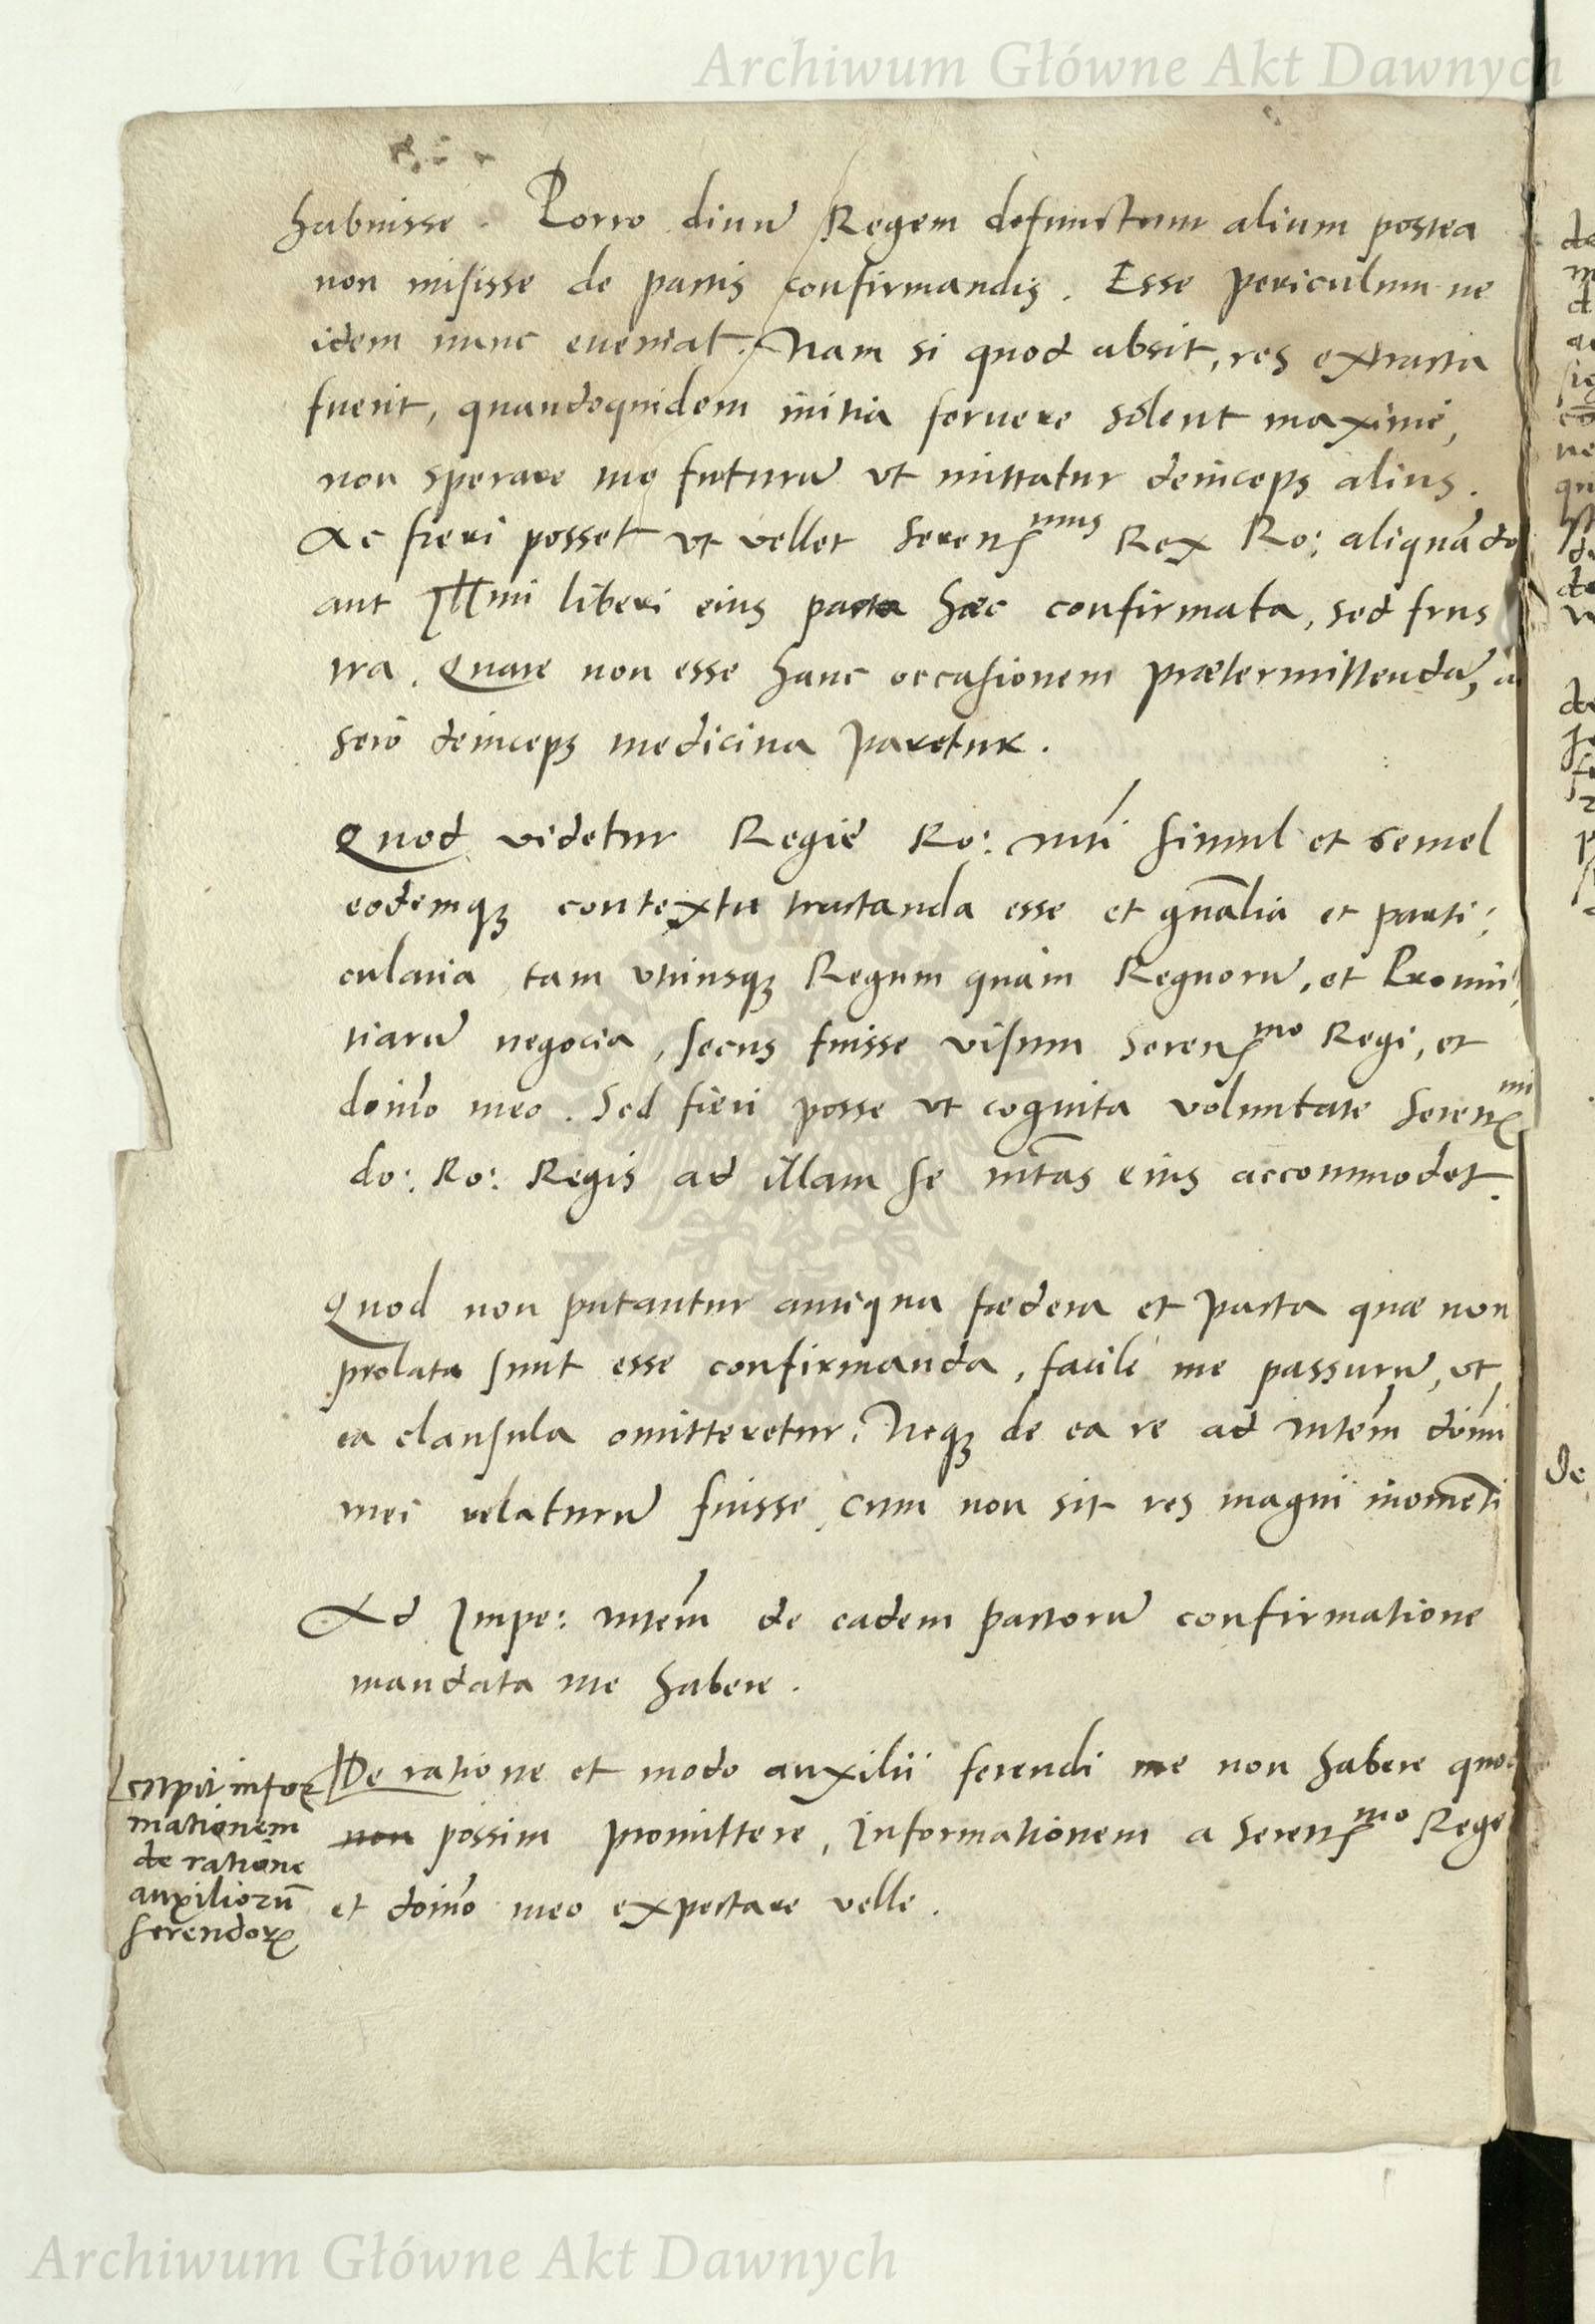 Archiwum Główne Akt Dawnych
habuisse. Porro diuū Regem defunctum alium postea
non misisse de pactis confirmandis. Esse periculum ne
idem nunc eueniat. Nam si quod absit, res extracta
fuerit, quandoquidem initia feruere solent maximè,
non sperare me futurū ut mittatur deinceps alius.
Ac fieri posset ut vellet Sereniss^mus Rex Ro: aliquādo
aut Illmi liberi eius pacta hæc confirmata, sed frus
tra. Quare non esse hanc occasionem prætermittendā,
serò deinceps medicina paretur.
Quod videtur Regie Ro: mti simul et semel
eodemq; contextu tractanda esse et gnālia et parti:
cularia, tam utriusq; Regum quàm Regnorū, et Prouin:
tiarū negocia, secus fuisse visum Sereniss^mo Regi, et
domno meo. Sed fieri posse ut cognita voluntate Sereniss^mi
do: Ro: Regis ad illam se mtas eius accommodet.
Quod non putantur antiqua fœdera et pacta quæ non
prolata sunt esse confirmanda, facilè me passurū, ut
ea clausula omitteretur. Neq; de ea re ad mtem domni
mei relaturū fuisse, cum non sit res magni momenti
Ad Impe: mtem de eadem pactorū confirmatione
mandata me habere.
De ratione et modo auxilii ferendi me non habere quod
non possim promittere, informationem a Sereniss^mo Rege
et domno meo expectare velle.
cupit infor
mationem
de ratione
auxiliorū
ferendor
de
Archiwum Główne Akt Dawnych